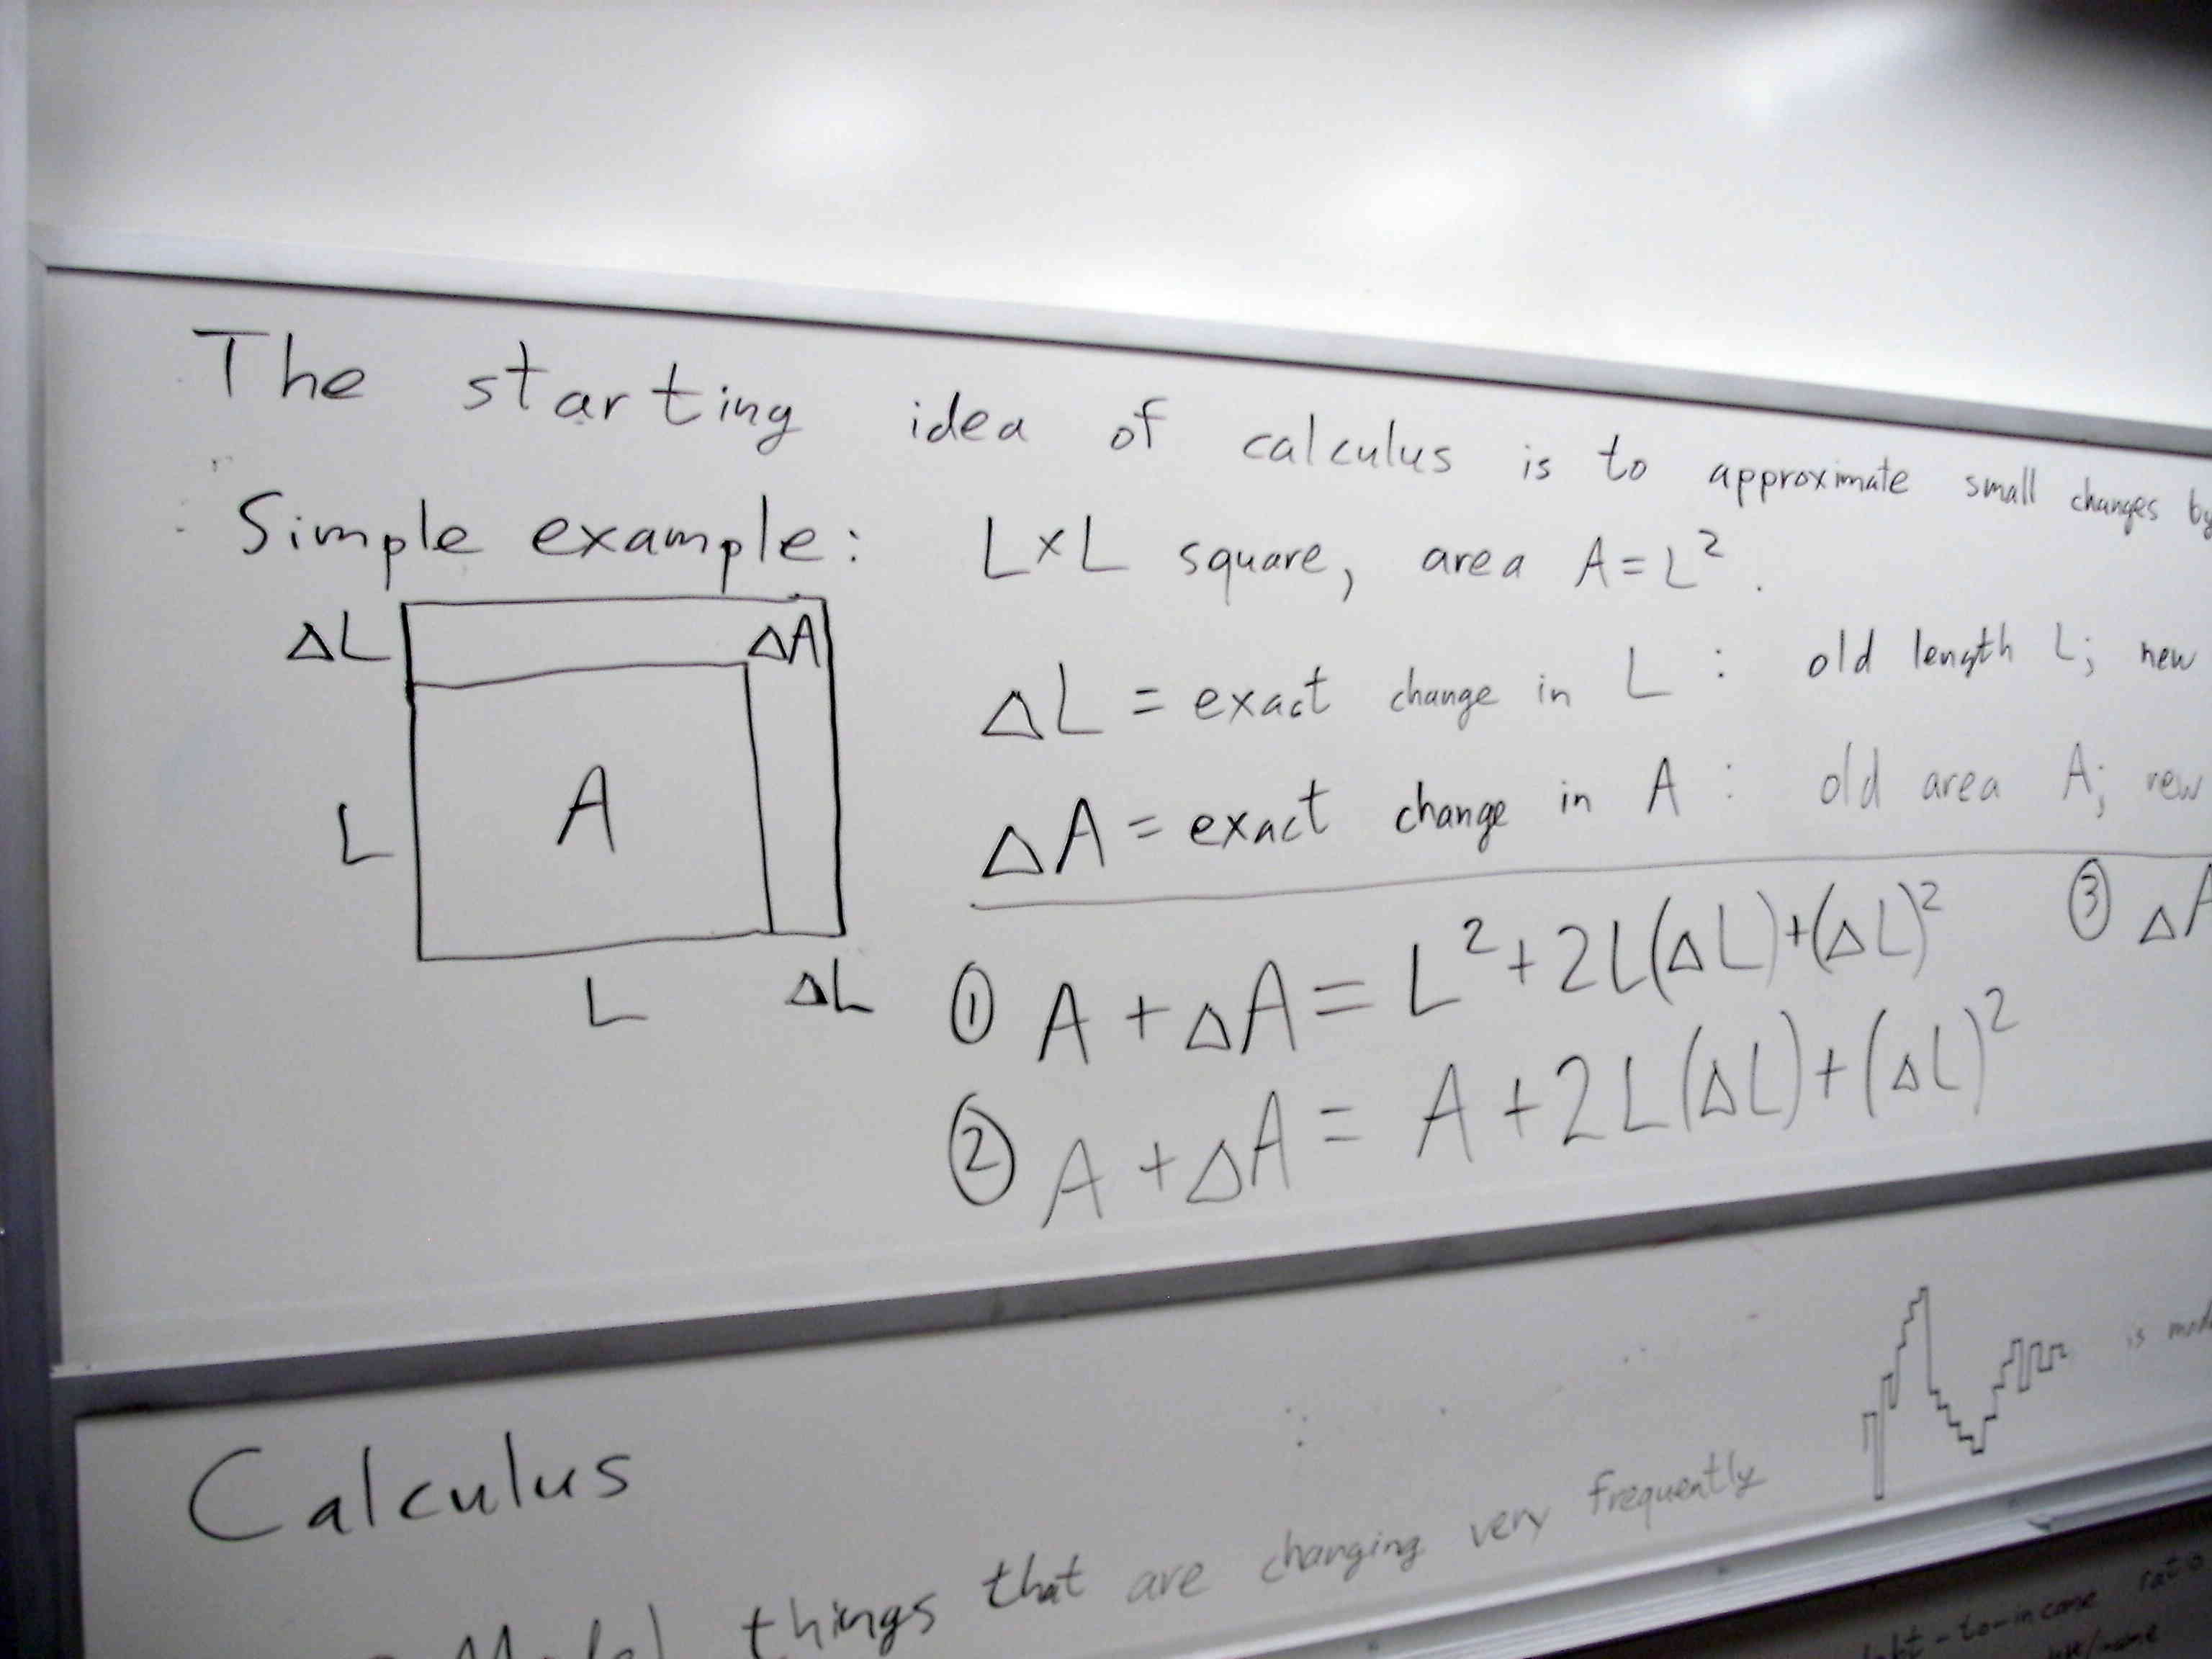 The starting idea of calculus is to approximate small changes by
Simple example: L×L square, area A=L².
ΔL ΔA
ΔL = exact change in L : old length L; new
A
L
ΔA = exact change in A : old area A; new
L ΔL
① A + ΔA = L² + 2L(ΔL) + (ΔL)²
③ ΔA
② A + ΔA = A + 2L(ΔL) + (ΔL)²
Calculus
is
Model things that are changing very frequently
debt-to-income ratio